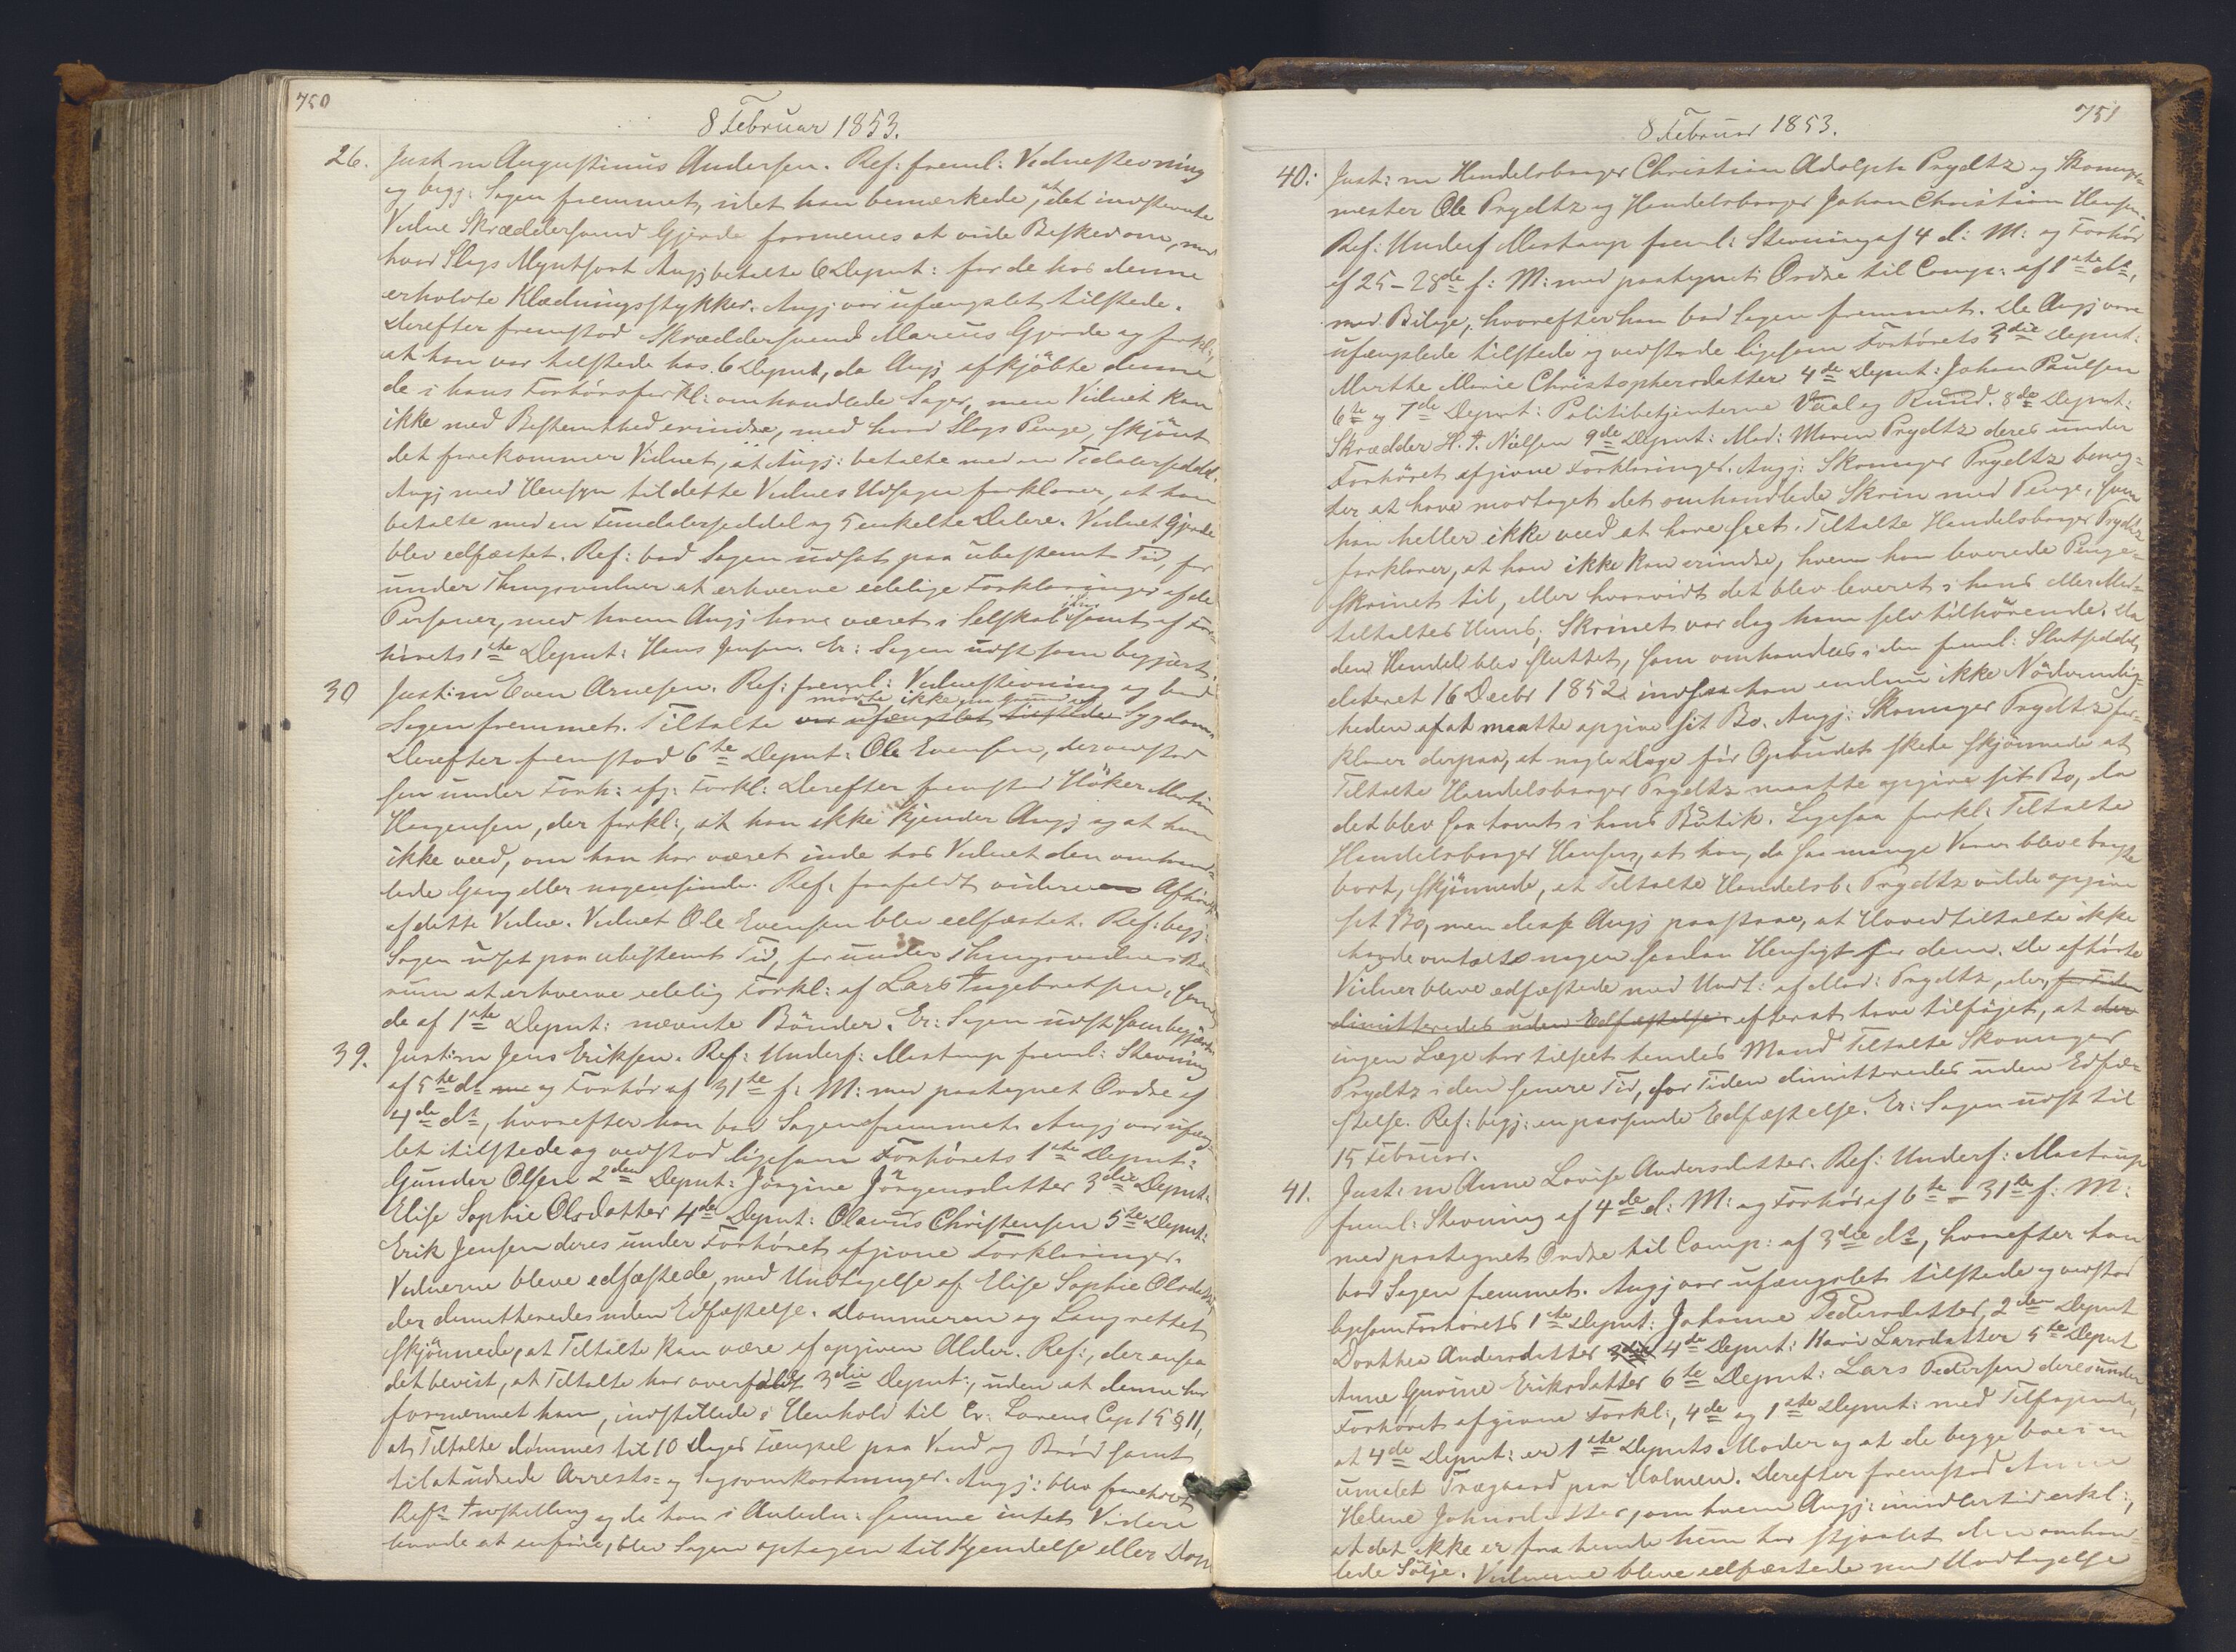 750
8 Februar 1853.
26. Just: m Augustinus Andersen. Ref: freml: Vidnestevning
og begj: Sagen fremmet, idet han bemærkede, at det indstevnte
Vidne Skræddersvend Gjerde formenes at vide Besked om, med
hvad Slags Myntsort Angj betalte 6 Deput: for de hos denne
erholdte Klædningsstykker. Angj: var ufængslet tilstede.
Derefter fremstod Skræddersvend Marius Gjerde og forkl:,
at han var tilstede hos 6 Deput, da Angj afkjöbte denne
de i hans Forhörsforkl: omhandlede Sager, men Vidnet kan
ikke med Bestemthed erindre, med hvad Slags Penge, skjönt
det forekommer Vidnet, at Angj: betalte med en Tidalerseddel.
Angj med Hensyn til dette Vidnes Udsagn forklarer, at han
betalte med en Femdalerseddel og 5 enkelte Dalere. Vidnet Gjerde
blev edfæstet. Ref: bad Sagen udsat paa ubestemt Tid, for
under Thingsvidner at erhverve edelige Forklaringer af de
Personer, med hvem Angj have været i Selskab samt af For-
hörets 1ste Deput: Hans Jensen. Er: Sagen udst som begjært.
30 Just: m Even Arnesen. Ref: freml: Vidnestevning og bad
mödte ikke paa Grund af
Sagen fremmet. Tiltalte var ufængslet tilstede Sygdom.
Derefter fremstod 6te Deput: Ole Evensen, der vedstod
sin under Forh: afg: Forkl: Derefter fremstod Höker Martin
Haagensen, der forkl:, at han ikke kjender Angj og at han
ikke veed, om han har været inde hos Vidnet den omhand-
lede Gang eller nogensinde. Ref: frafaldt videre Afhörelse
af dette Vidne. Vidnet Ole Evensen blev edfæstet. Ref: begj:
Sagen udsat paa ubestemt Tid, for under Thingsvidner i Bæ-
rum at erhverve edelig Forkl: af Lars Ingebretsen, samt
de af 1ste Deput: nævnte Bönder. Er: Sagen udst som begjært.
39. Just: m Jens Eriksen. Ref: Underf: Mastrup freml: Stevning
af 5te ds og Forhör af 31te f: M: med paategnet Ordre af
4de ds, hvorefter han bad Sagen fremmet. Angj var ufængs-
let tilstede og vedstod ligesom Forhörets 1ste Deput:
Gunder Olsen 2den Deput: Jörgine Jörgensdatter 3die Deput:
Elise Sophie Olsdatter 4de Deput: Olavus Christensen 5te Deput:
Erik Jensen deres under Forhöret afgivne Forklaringer.
Vidnerne bleve edfæstede, med Undtagelse af Elise Sophie Olsdatter
der dimitteredes uden Edfæstelse. Dommeren og Laugrettet
skjönnede, at Tiltalte kan være af opgiven Alder. Ref:, der ansaa
det bevist, at Tiltalte har overfaldt 3die Deput:, uden at denne har
fornærmet ham, indstillede i Henhold til Cr: Lovens Cap 15 § 11,
at Tiltalte dömmes til 10 Dages Fængsel paa Vand og Bröd samt
til at udrede Arrests- og Sagsomkostninger. Angj: blev forehold
Refs Indstilling og da han i Anledn: samme intet Videre
havde at anföre, blev Sagen optagen til Kjendelse eller Dom
751
8 Februar 1853.
40: Just: m Handelsborger Christian Adolph Prydtz og Skomager-
mester Ole Prydtz og Handelsborger Johan Christian Hansen.
Ref: Underf Mastrup freml: Stevning af 4 d: M: og Forhör
af 25-28de f: M: med paategnet Ordre til Comp: af 1ste ds,
med Bilage, hvorefter han bad Sagen fremmet. De Angj vare
ufængslede tilstede og vedstode ligesom Forhörets 3die Deput:
Marthe Marie Christophersdatter 4de Deput: Johan Paulsen
6te og 7de Deput: Politibetjenterne Vaal og Rund. 8de Deput:
Skrædder H. A. Nielsen 9de Deput: Mad: Maren Prydtz deres under
Forhöret afgivne Forklaringer. Angj: Skomager Prydtz beneg-
ter at have modtaget det omhandlede Skrin med Penge, som
han heller ikke veed at have seet. Tiltalte Handelsborger Prydtz
forklarer, at han ikke kan erindre, hvem han leverede Penge-
skrinet til, eller hvorvidt det blev leveret i hans eller Med-
tiltaltes Huus; Skrinet var dog ham selv tilhörende. Da
den Handel blev sluttet, som omhandles i den freml: Slutseddel,
dateret 16 Decbr 1852, indsaa han endnu ikke Nödvendig-
heden af at maatte opgive sit Bo. Angj: Skomager Prydtz for-
klarer derpaa, at nogle Dage för Opbudet skete skjönnede at
Tiltalte Handelsborger Prydtz maatte opgive sit Bo, da
det blev saa tomt i hans Butik. Ligesaa forkl: Tiltalte
Handelsborger Hansen, at han, da saa mange Varer bleve bragte
bort, skjönnede, at Tiltalte Handelsb: Prydtz vilde opgive
sit Bo, men disse Angj paastaae, at Hovedtiltalte ikke
havde omtalt nogen saadan Hensigt for dem. De afhörte
Vidner bleve edfæstede med Undt: af Mad: Prydtz, der, for Tiden
dimitteredes uden Edfæstelse efterat have tilföjet, at der
ingen Læge har tilseet hendes Mand Tiltalte Skomager
Prydtz i den senere Tid, for Tiden dimitteredes uden Edfæ-
stelse. Ref: begj: en passende Edfæstelse. Er: Sagen udst til
15 Februar.
41. Just: m Anne Lovise Andersdatter. Ref: Underf: Mastrup
freml: Stevning af 4de d: M: og Forhör af 6te - 31te f: M:
med paategnet Ordre til Comp: af 3die ds, hvorefter han
bad Sagen fremmet. Angj var ufængslet tilstede og vedstod
ligesom Forhörets 1ste Deput: Johanne Pedersdatter, 2den Deput
Dorthea Andersdatter 3die 4de Deput: Kari Larsdatter 5te Deput
Anne Gurine Eriksdatter 6te Deput: Lars Pedersen deres under
Forhöret afgivne Forkl:, 4de og 1ste Deput: med Tilföjende,
at 4de Deput: er 1ste Deputs Moder og at de begge boe i en
umalet Trægaard paa Holmen. Derefter fremstod Anne
Helene Johnsdatter, om hvem Angj: imidlertid erkl:,
at det ikke er fra hende hun har stjaalet den omhand-
lede Sölje. Vidnerne bleve edfæstede med Undtagelse